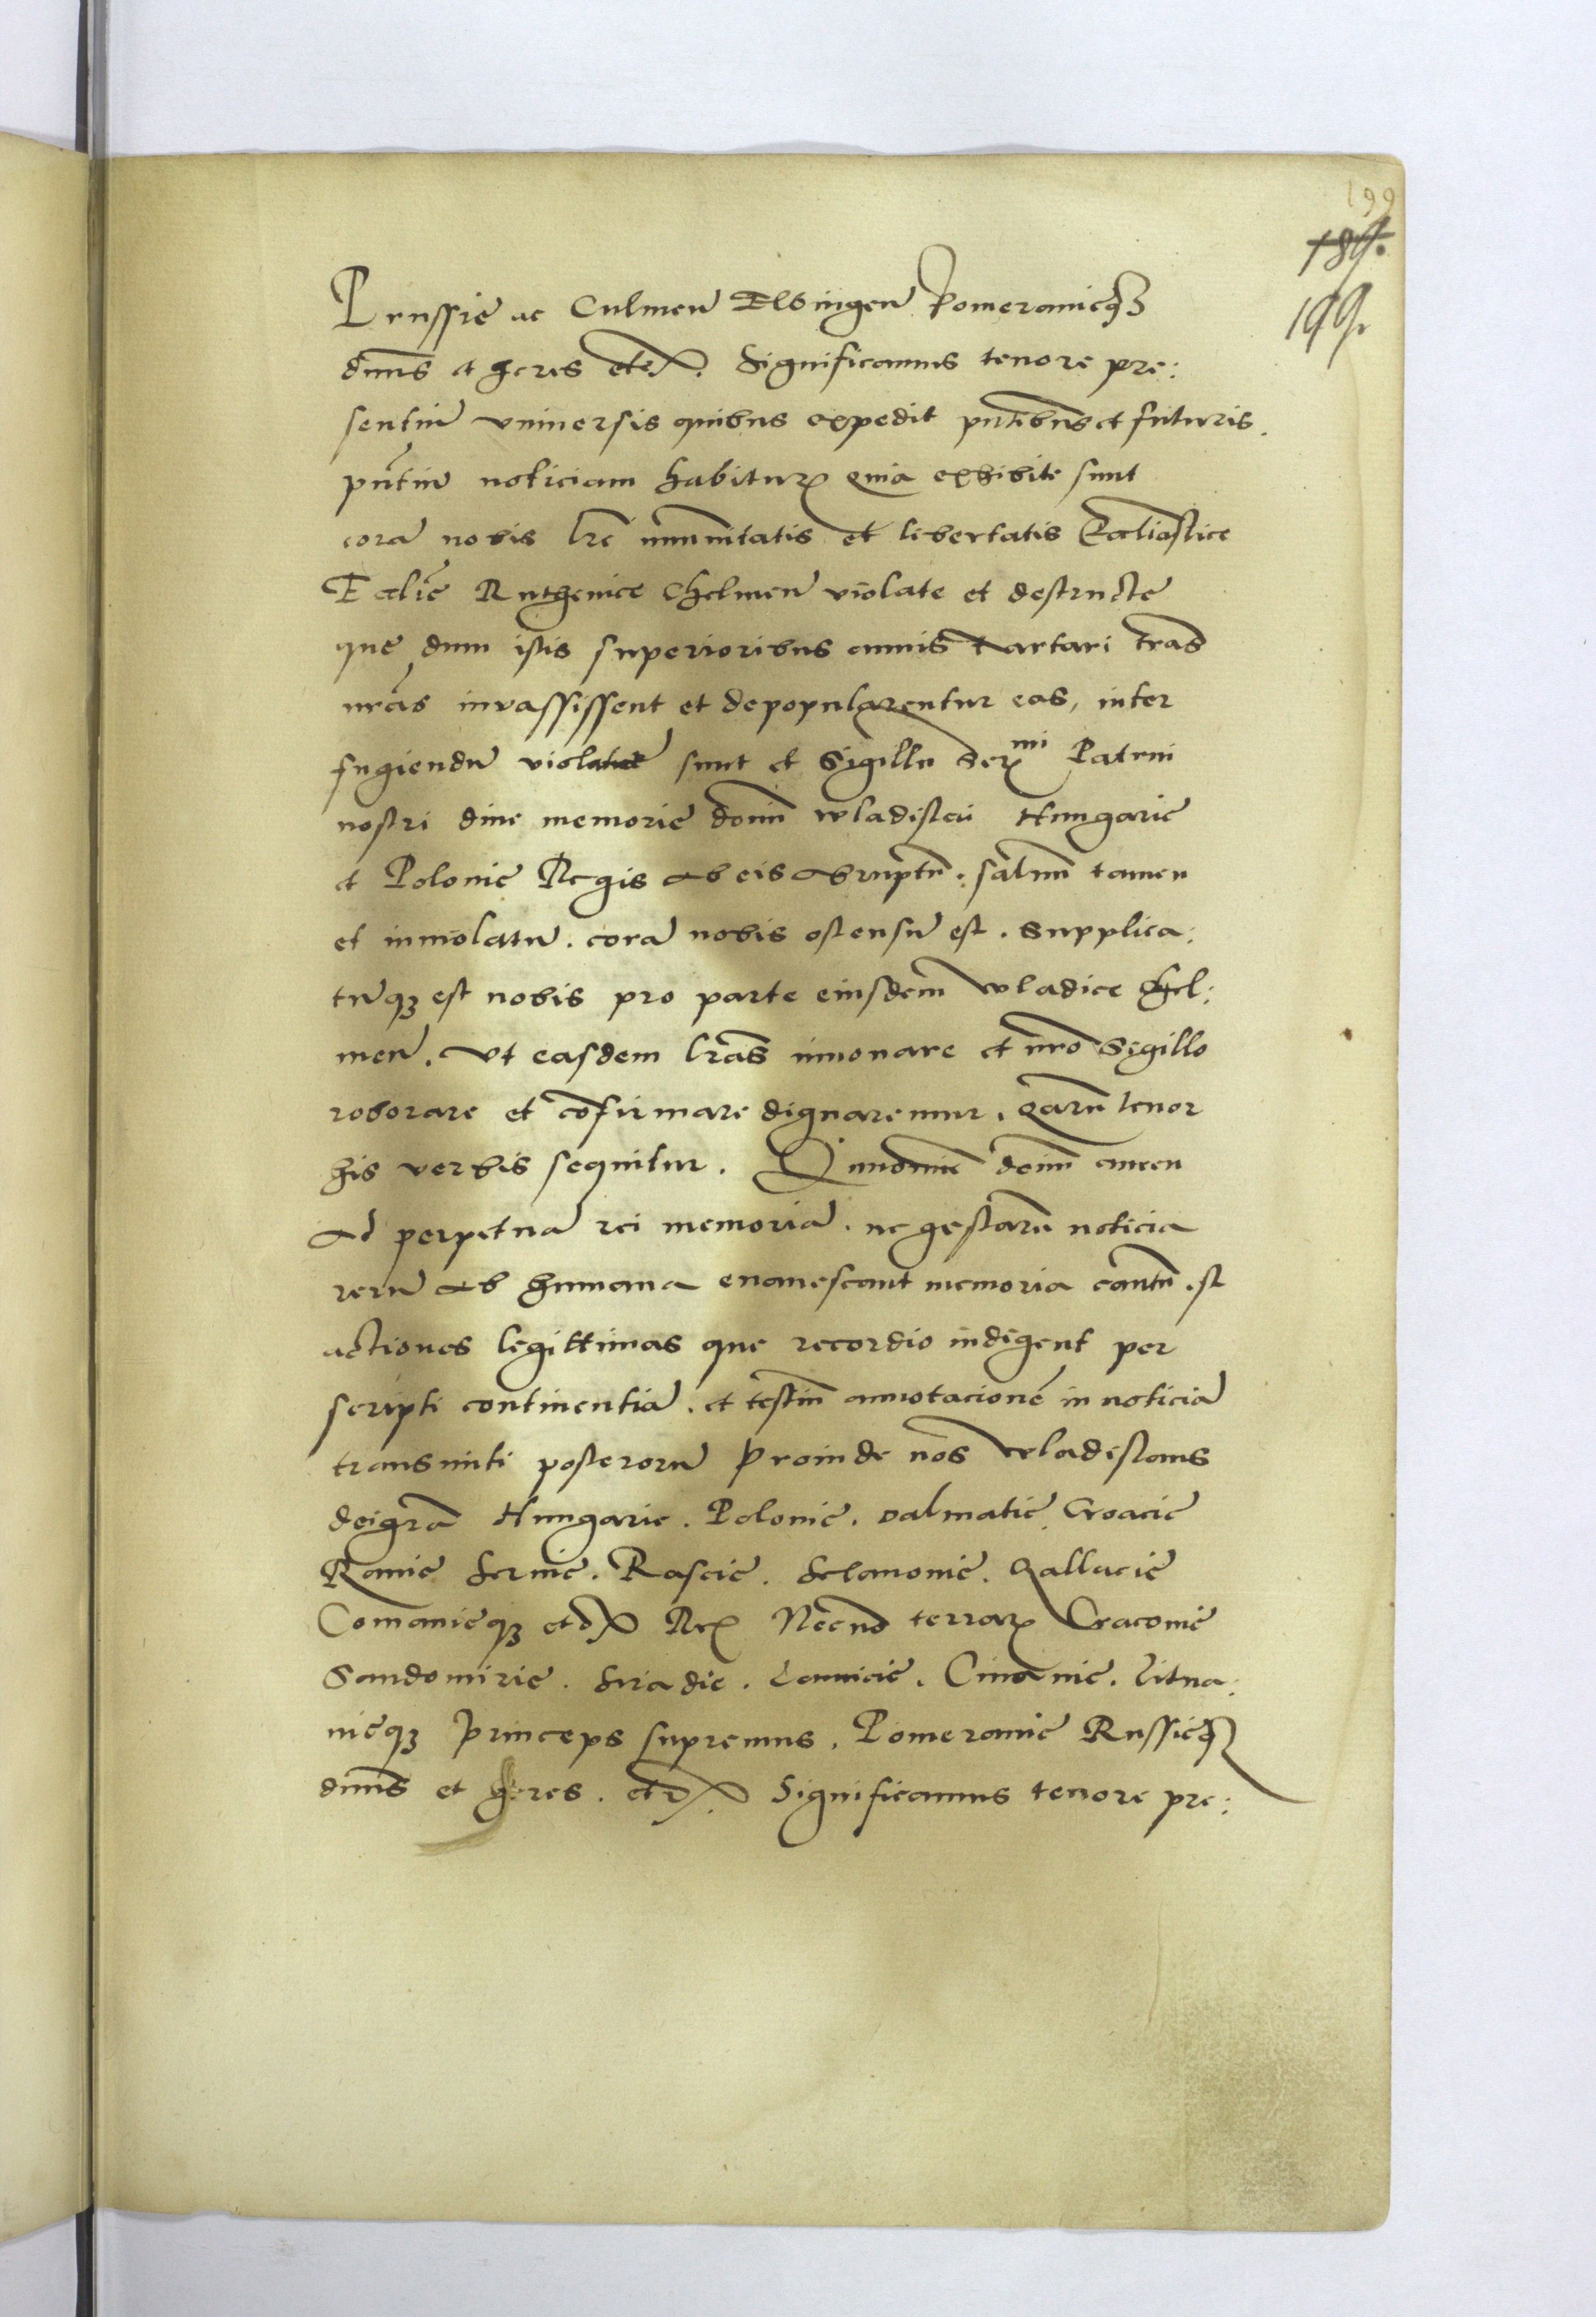 199
189.
199.
Prussie ac Culmen̄ Elbingen̄ Pomeranieqȝ
dnūs et heres etc. Significamus tenore pre:
sentiū vniversis quibus expedit pn̄tibus et futuris.
pn̄tiū noticiam habituꝝ quia exhibite sunt
corā nobis lr̄e immunitatis et libertatis Eccliastice
Eclie Ruthenice Chelmen̄ violate et destructe
que dum istis superioribus annis Tartari tras
nrās invassissent et depopularentur eas, inter
fugiendū violate sunt et Sigillū Serᵐⁱ Patrui
nostri dive memorie domī Wladislai Hungarie
et Polonie Regis ab eis abruptū: salvum tamen
et inviolatū. corā nobis ostensū est. Supplica:
tūqȝ est nobis pro parte eiusdem Wladice Hel:
men̄. vt easdem lrās innovare et nrō Sigillo
roborare et cōfirmare dignaremur. Qarū tenor
his verbis sequitur. In nomine domī amen
Ad perpetuā rei memoriā. ne gestarū noticia
rerū ab humana evanescant memoria cautū est
actiones legittimas que recordio indigent per
scripti continentiā. et testiū annotacionē in noticiā
transmitti posterorū Proinde nos Wladislaus
dei grā Hungarie. Polonie. Dalmatie Croacie
Ramie Servie. Rascie. Sclavonie. Vallacie
Comanieqȝ etc Rex Necnō terraꝝ Cracovie
Sandomirie. Siradie. Lancicie. Cuiavie. Litua:
nieqȝ Princeps supremus. Pomeranie Russieqȝ
dnūs et heres. etc. Significamus tenore pre: